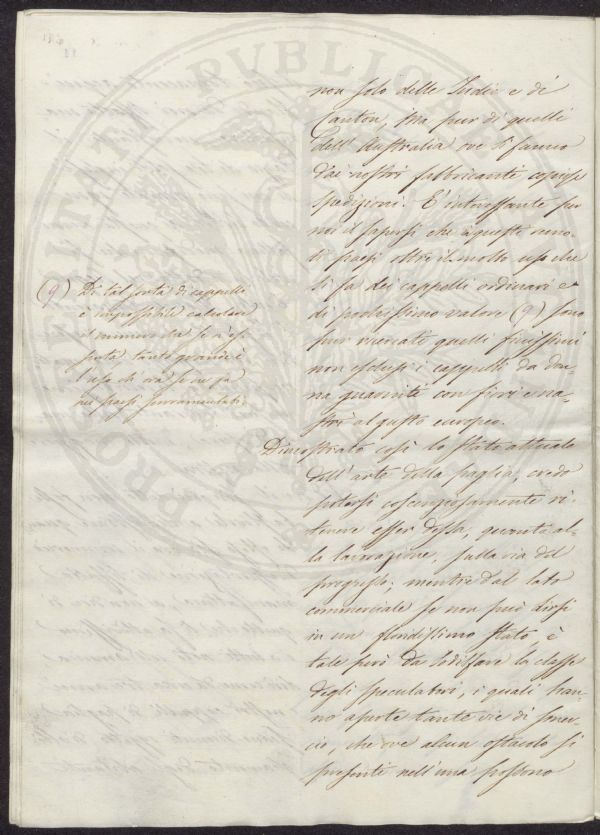 non solo delle Indie e di
Canton, ma pur di quelli
dell'Australia ove si fanno
dai nostri fabbricanti copiose
spedizioni. È interessante per
noi il sapersi che a queste
di paesi oltre il molto uso che
si fa dei cappelli ordinari e
di pochissimo valore (9) sono
pur ricercati quelli finissimi
non esclusi i cappelli da don-
na guarniti con fiori e na-
stri al gusto europeo.
Dimostrato così lo stato attuale
dell'arte della paglia, credo
potersi coscenziosamente ri-
tenere esser dessa, quanto al-
la lavorazione, sulla via del
progresso; mentre dal lato
commerciale se non può dirsi
in un floridissimo stato, è
tale però da sodisfare la classe
degli speculatori, i quali han-
no aperte tante vie di smer-
cio, che ove alcun ostacolo si
presenti nell'una possono
(9) Di tal sorta di cappelli
è impossibile calcolare
il numero che se n'es
porta tanto grande è
l'uso che ora se ne fa
nei paesi surramentati.
PROSPERITATI PVBLICAE